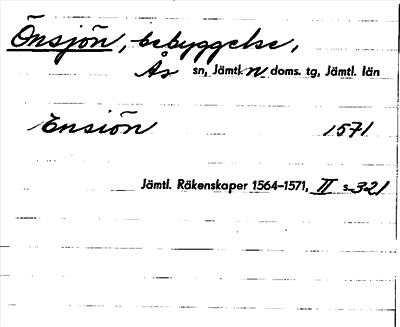 Önsjön, bebyggelse,
Ås sn, Jämtl. N doms. tg, Jämtl. län
Ensiön 1571
Jämtl. Räkenskaper 1564-1571, II s. 321